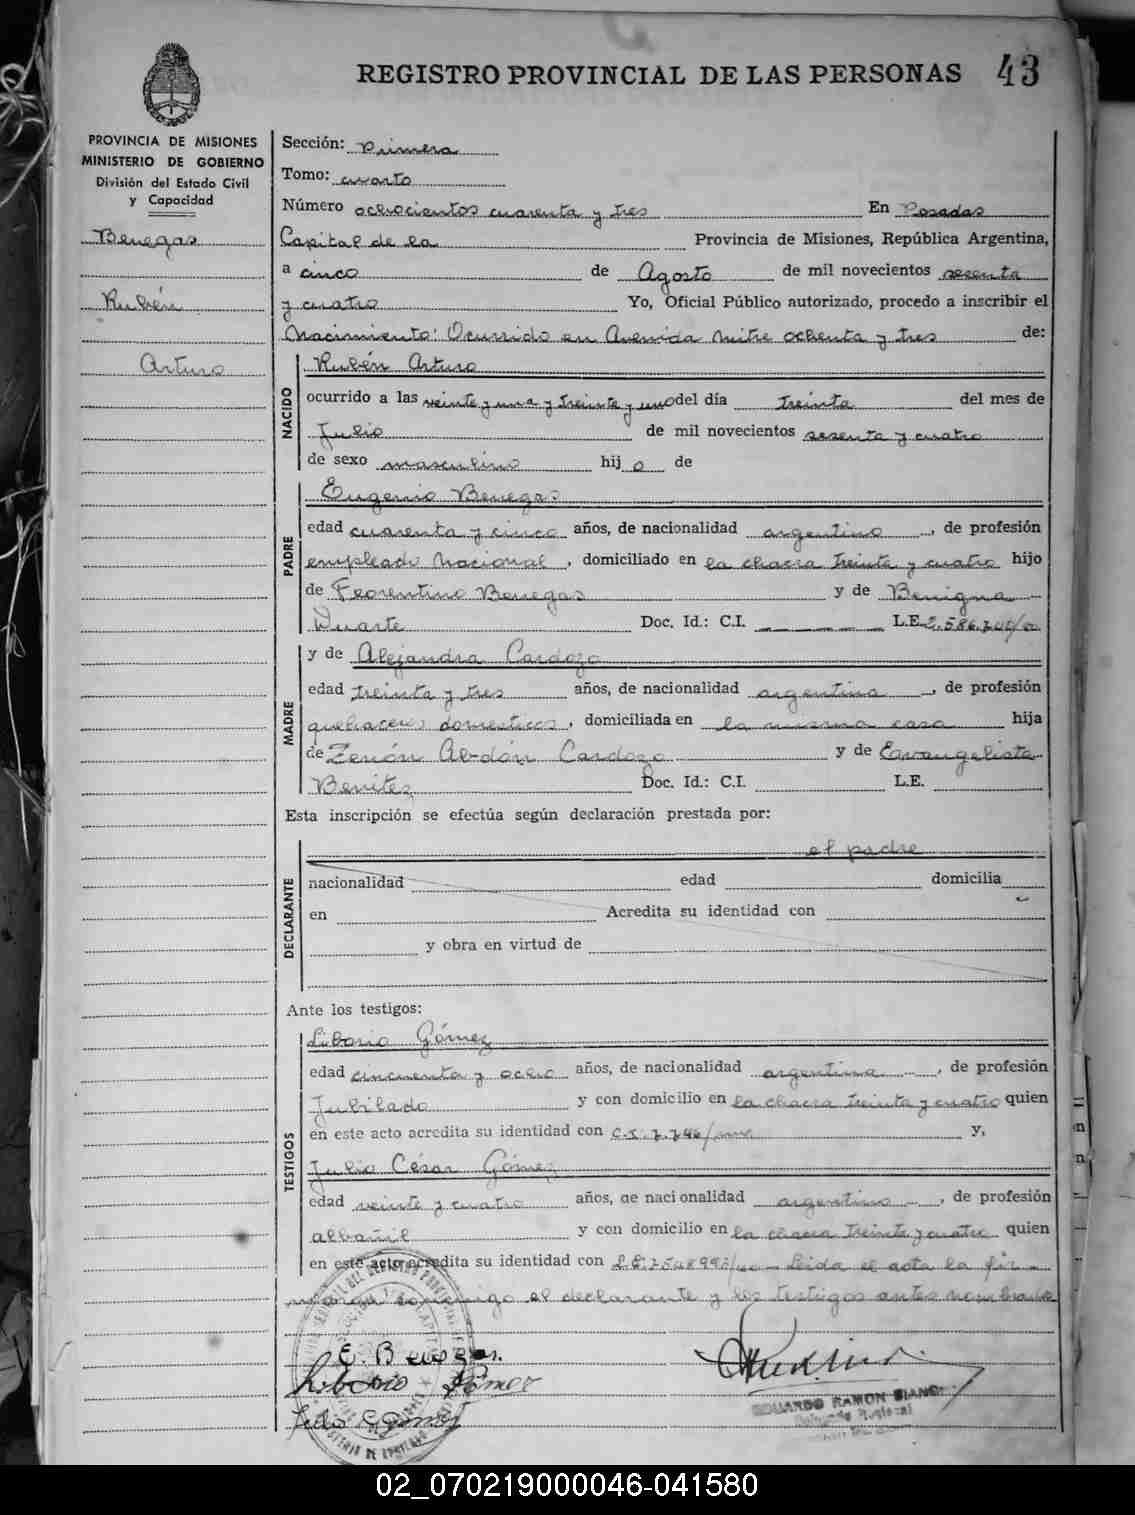 REGISTRO PROVINCIAL DE LAS PERSONAS 43
PROVINCIA DE MISIONES
MINISTERIO DE GOBIERNO
División del Estado Civil
y Capacidad
Benegas
Rubén
Arturo
Sección: Primera
Tomo: cuarto
Número ochocientos cuarenta y tres En Posadas
Capital de la Provincia de Misiones, República Argentina,
a cinco de Agosto de mil novecientos sesenta
y cuatro Yo, Oficial Público autorizado, procedo a inscribir el
Nacimiento: Ocurrido en Avenida Mitre ochenta y tres de:
NACIDO
Rubén Arturo
ocurrido a las veinte y una y treinta y uno del día treinta del mes de
Julio de mil novecientos sesenta y cuatro
de sexo masculino hij o de
PADRE
Eugenio Benegas
edad cuarenta y cinco años, de nacionalidad argentino, de profesión
empleado Nacional, domiciliado en la chacra treinta y cuatro hijo
de Florentino Benegas y de Benigna
Duarte Doc. Id.: C.I. L.E.
MADRE
y de Alejandra Cardozo
edad treinta y tres años, de nacionalidad argentina, de profesión
quehaceres domesticos, domiciliada en la misma casa hija
de Zenón Abdón Cardozo y de Eavangelista
Benitez Doc. Id.: C.I. L.E.
Esta inscripción se efectúa según declaración prestada por:
DECLARANTE
el padre
nacionalidad edad domicilia
en Acredita su identidad con
y obra en virtud de
Ante los testigos:
TESTIGOS
Liborio Gómez
edad cincuenta y ocho años, de nacionalidad argentina, de profesión
Jubilado y con domicilio en la chacra treinta y cuatro quien
en este acto acredita su identidad con C.I. 7.746/ y,
Julio César Gómez
edad veinte y cuatro años, de nacionalidad argentino, de profesión
albañil y con domicilio en la chacra treinta y cuatro quien
en este acto acredita su identidad con L.E. Leida el acta la fir-
conmigo el declarante y los testigos antes nombrados
E. Benegas.
Liborio Gómez
Julio C. Gómez
EDUARDO RAMON BIANCHI
02_070219000046-041580